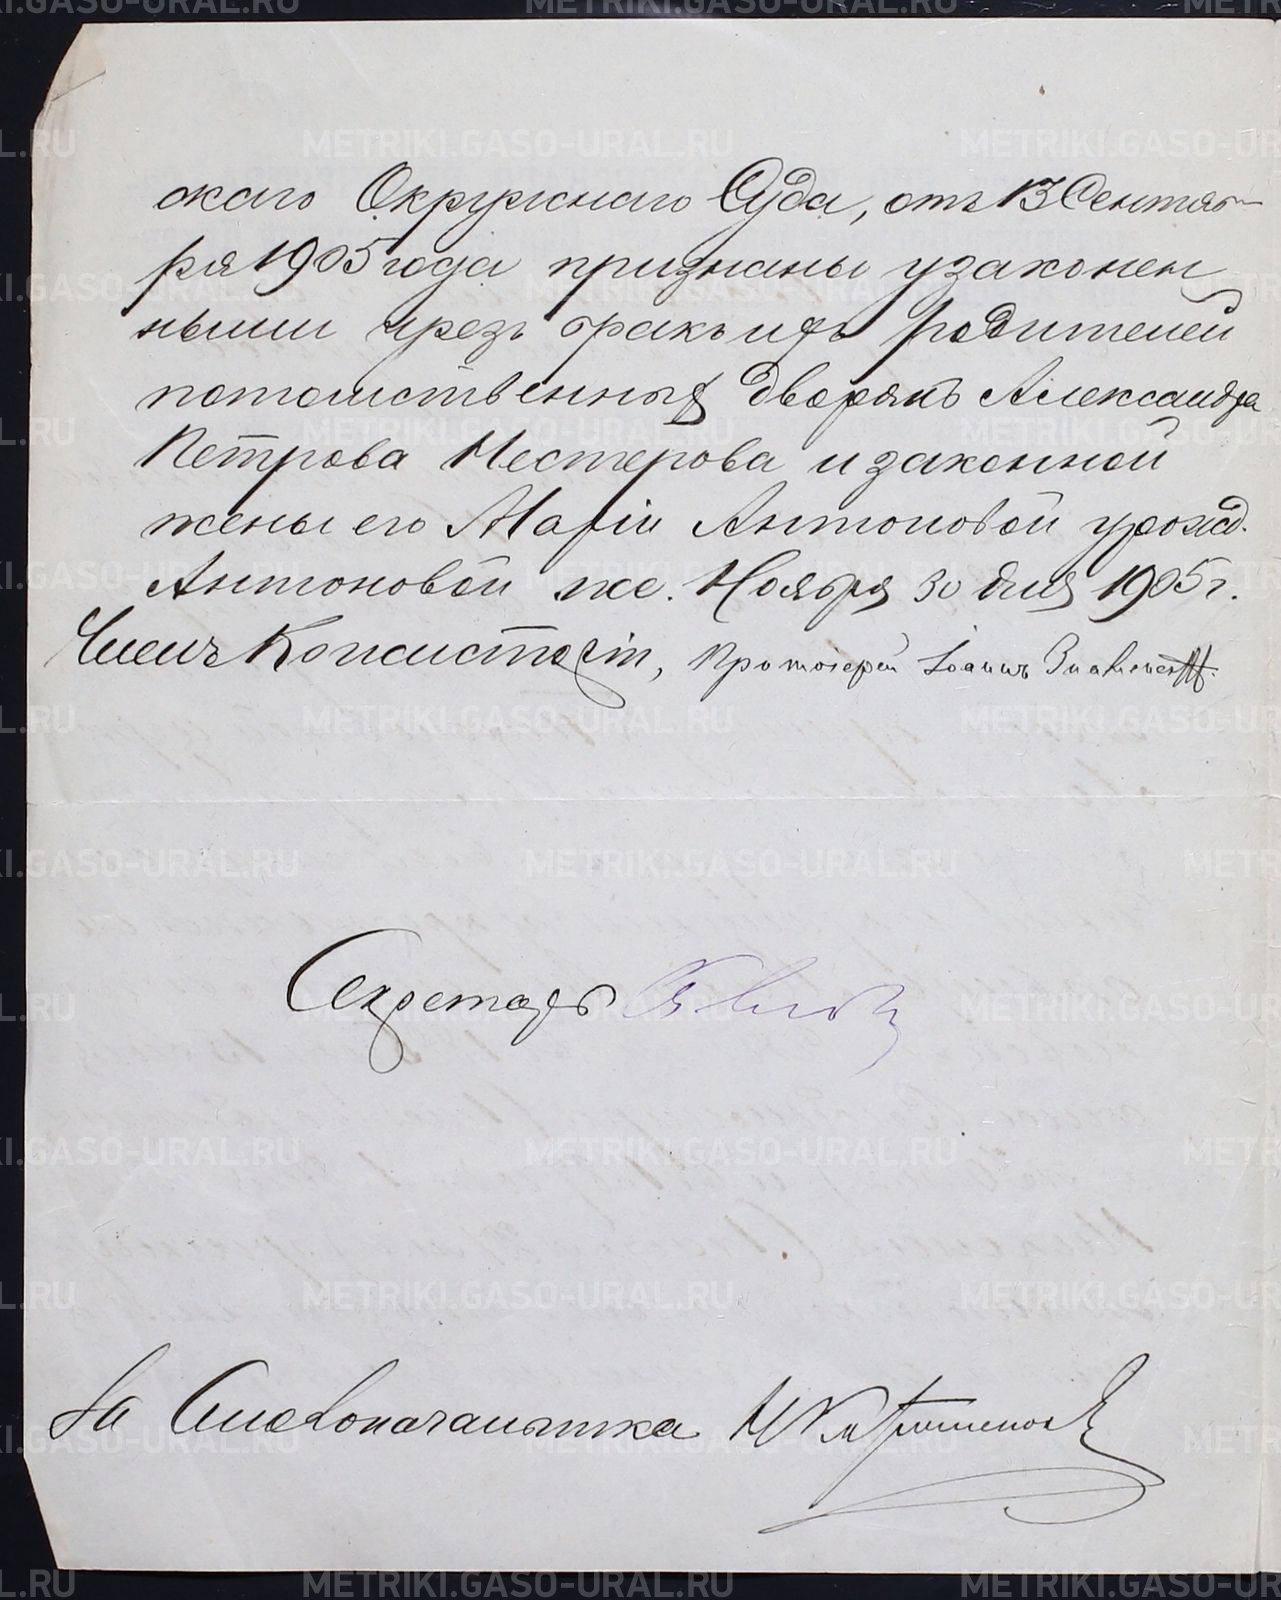 скаго Окружнаго Суда, отъ 13 Сентяб-
ря 1905 года признаны узаконен
ными чрезъ бракъ ихъ родителей
потомственныхъ дворянъ Александра
Петрова Нестерова и законной
жены его Маріи Антоновой урожд.
Антоновой же. Ноября 30 дня 1905 г.
Членъ Консисторіи, Протоіерей Іоаннъ
Секретарь
За Столоначальника
METRIKI.GASO-URAL.RU